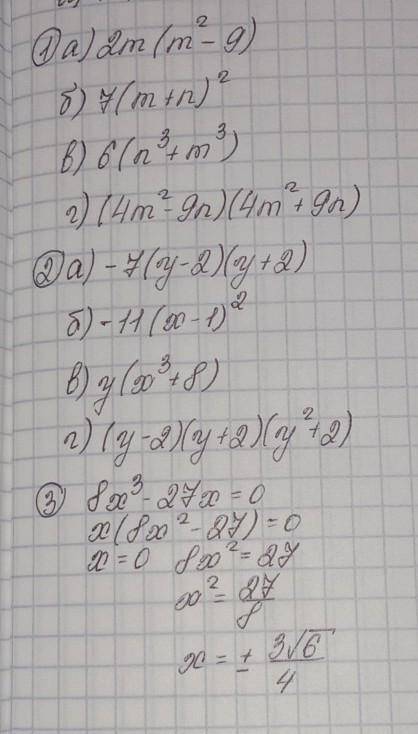 ① а) 2m(m² - 9)
б) 7(m+n)²
в) 6(n³+m³)
г) (4m² - 9n)(4m² + 9n)
② а) -7(y-2)(y+2)
б) -11(x-1)²
в) y(x³+8)
г) (y-2)(y+2)(y²+2)
③ 8x³ - 27x = 0
x(8x² - 27) = 0
x = 0 8x² = 27
x² = 27/8
x = ± 3√6/4